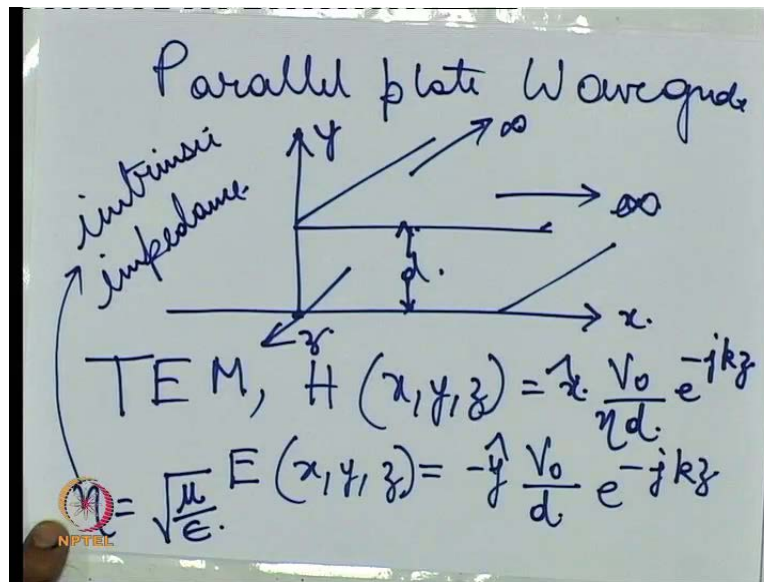 Parallel plate Wavegude
y
∞
intrinsic
impedance.
∞
d.
x.
z
TEM, H (x,y,z) = x̂. V₀/ηd. e^-jkz
E (x,y,z) = -ŷ V₀/d e^-jkz
η = √μ/ϵ.
NPTEL